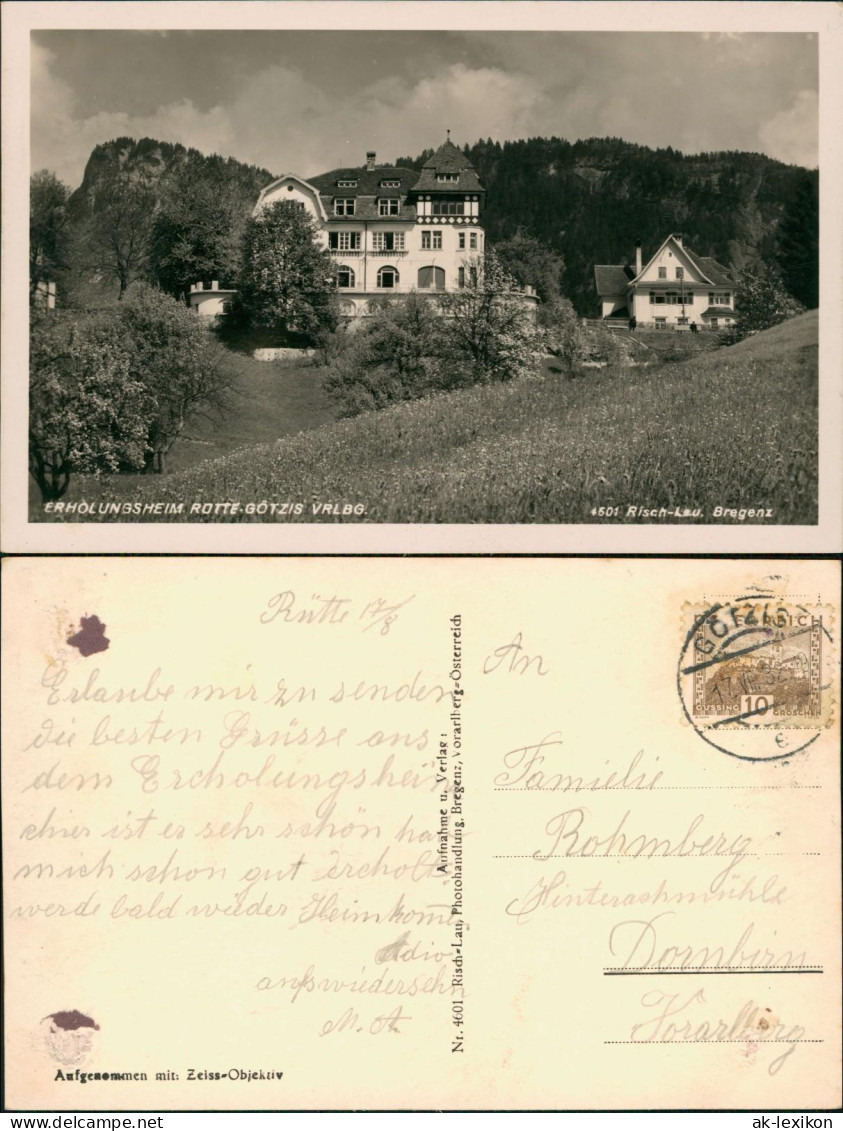 ERHOLUNGSHEIM RÜTTE-GÖTZIS VRLBG.
4601 Risch-Lau, Bregenz
Rütte 17/8
Erlaube mir zu senden
die besten Grüsse aus
dem Ercholungsheim
chier ist es sehr schön hab
mich schon gut ercholt
werde bald wieder Heimkomen
Adio
aufswiedersehn
M. A.
Aufgenommen mit: Zeiss-Objektiv
Aufnahme u. Verlag:
Nr. 4601 Risch-Lau, Photohandlung, Bregenz, Vorarlberg-Österreich
An
Familie
Rohmberg
Hinterachmühle
Dornbirn
Vorarlberg
ÖSTERREICH
GÜSSING 10 GROSCHEN
GÖTZIS
17.VIII.32
ak-ansichtskarten.de
ak-lexikon